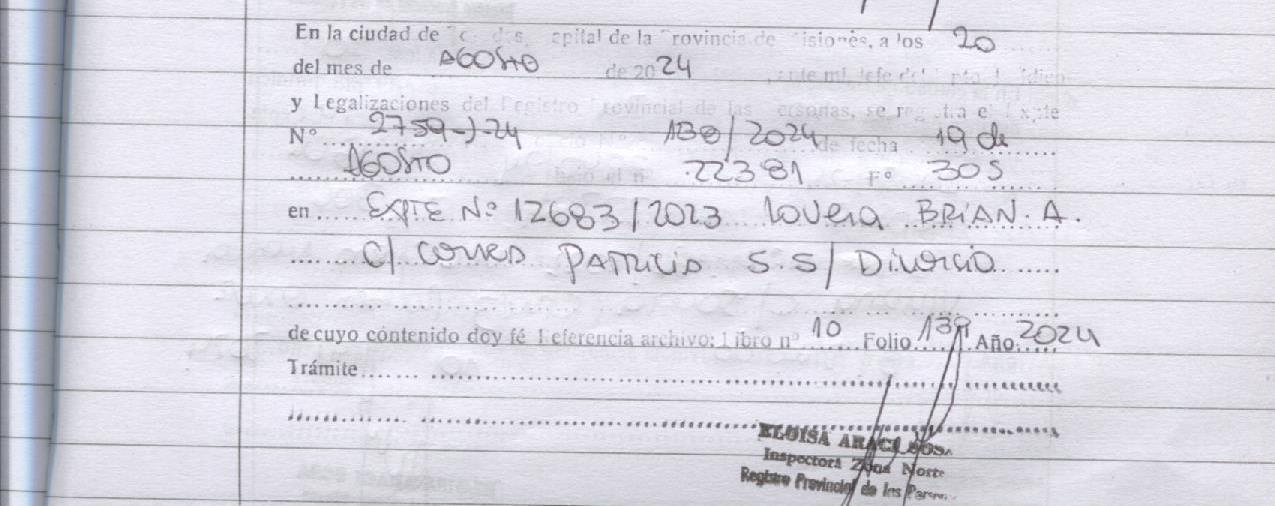 En la ciudad de capital de la Provincia de Misiones, a los 20
del mes de AGOSTO de 2024 , ante mí, Jefe del Dpto.
y Legalizaciones del Registro Provincial de las Personas, se registra el Expte
Nº 2759-J-24 130/2024 de fecha 19 de
AGOSTO bajo el nº 22381 Fº 305
en EXPTE Nº 12683/2023 Lovera BRIAN. A.
C/ PATRICIA S.S/ Divorcio
de cuyo contenido doy fé Referencia archivo: Libro nº 10 Folio Año: 2024
Trámite
ELOISA
Inspectora Zona Norte
Registro Provincial de las